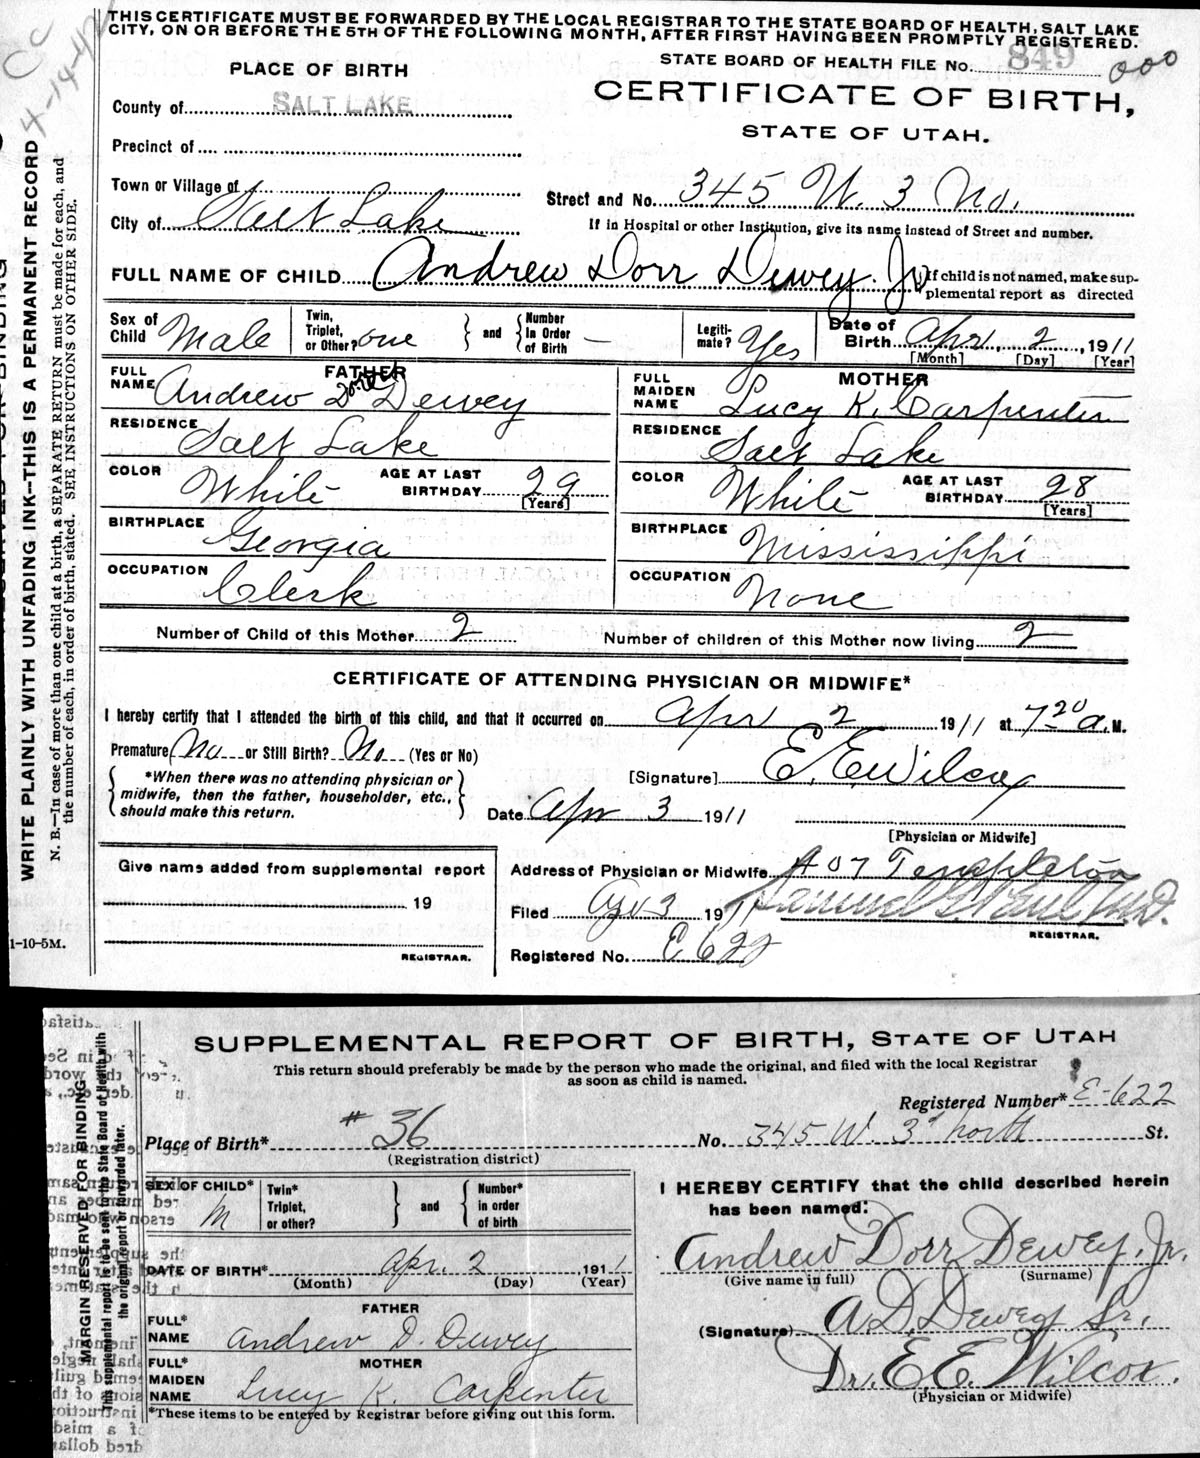 THIS CERTIFICATE MUST BE FORWARDED BY THE LOCAL REGISTRAR TO THE STATE BOARD OF HEALTH, SALT LAKE
CITY, ON OR BEFORE THE 5TH OF THE FOLLOWING MONTH, AFTER FIRST HAVING BEEN PROMPTLY REGISTERED.
CC
4-14-42
PLACE OF BIRTH
STATE BOARD OF HEALTH FILE No. 849 000
CERTIFICATE OF BIRTH,
STATE OF UTAH.
County of SALT LAKE
Precinct of
Town or Village of
City of Salt Lake
Street and No. 345 W. 3 No.
If in Hospital or other Institution, give its name instead of Street and number.
FULL NAME OF CHILD Andrew Dorr Dewey. Jr
If child is not named, make sup-
plemental report as directed
Sex of Child Male
Twin, Triplet, or Other? one
and
Number in Order of Birth —
Legiti- mate? Yes
Date of Birth Apr. 2, 1911
[Month] [Day] [Year]
FATHER
FULL NAME Andrew Dorr Dewey
RESIDENCE Salt Lake
COLOR White
AGE AT LAST BIRTHDAY 29
[Years]
BIRTHPLACE Georgia
OCCUPATION Clerk
MOTHER
FULL MAIDEN NAME Lucy K. Carpenter
RESIDENCE Salt Lake
COLOR White
AGE AT LAST BIRTHDAY 28
[Years]
BIRTHPLACE Mississippi
OCCUPATION None
Number of Child of this Mother 2
Number of children of this Mother now living 2
CERTIFICATE OF ATTENDING PHYSICIAN OR MIDWIFE*
I hereby certify that I attended the birth of this child, and that it occurred on Apr 2 1911 at 7 20 a. M.
Premature No or Still Birth? No (Yes or No)
*When there was no attending physician or
midwife, then the father, householder, etc.,
should make this return.
[Signature] E. E. Wilcox
Date Apr 3 1911
[Physician or Midwife]
Give name added from supplemental report
19
REGISTRAR.
1-10-5M.
Address of Physician or Midwife 407 Templeton
Filed Apr 3 1911
Samuel G. Paul M.D.
REGISTRAR.
Registered No. E 622
WRITE PLAINLY WITH UNFADING INK—THIS IS A PERMANENT RECORD
N. B.—In case of more than one child at a birth, a SEPARATE RETURN must be made for each, and
the number of each, in order of birth, stated. SEE INSTRUCTIONS ON OTHER SIDE.
SUPPLEMENTAL REPORT OF BIRTH, STATE OF UTAH
This return should preferably be made by the person who made the original, and filed with the local Registrar
as soon as child is named.
Registered Number* E-622
Place of Birth* #36 No. 345 W. 3d North St.
(Registration district)
SEX OF CHILD* M
Twin* Triplet, or other?
and
Number* in order of birth
DATE OF BIRTH* Apr. 2 1911
(Month) (Day) (Year)
FATHER
FULL* NAME Andrew D. Dewey
MOTHER
FULL* MAIDEN NAME Lucy K. Carpenter
*These items to be entered by Registrar before giving out this form.
I HEREBY CERTIFY that the child described herein
has been named:
Andrew Dorr Dewey. Jr.
(Give name in full) (Surname)
(Signature) A. D. Dewey Sr.
Dr. E. E. Wilcox.
(Physician or Midwife)
MARGIN RESERVED FOR BINDING
This supplemental report is to be sent to the State Board of Health with
the original report or forwarded later.